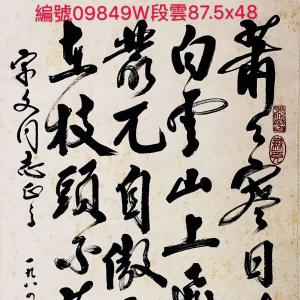 編號09849W段雲87.5x48
蕭々寒日
白雲山上
叢兀自傲
在枝頭不
宋文同志正之
一九八